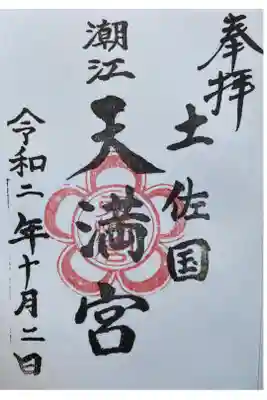 奉拝
土佐国
潮江
天満宮
令和二年十月二日